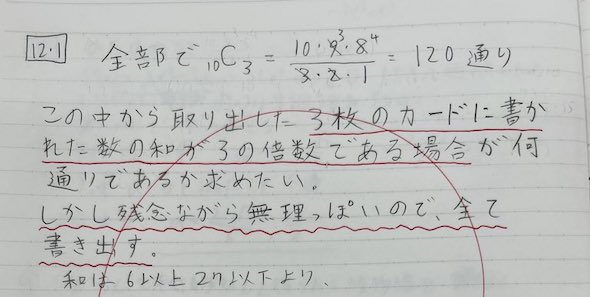 12・1
全部で ₁₀C₃ = 10・9³・8⁴ / 3・2・1 = 120 通り
この中から取り出した3枚のカードに書か
れた数の和が3の倍数である場合が何
通りであるか求めたい。
しかし残念ながら無理っぽいので、全て
書き出す。
和は6以上27以下より、